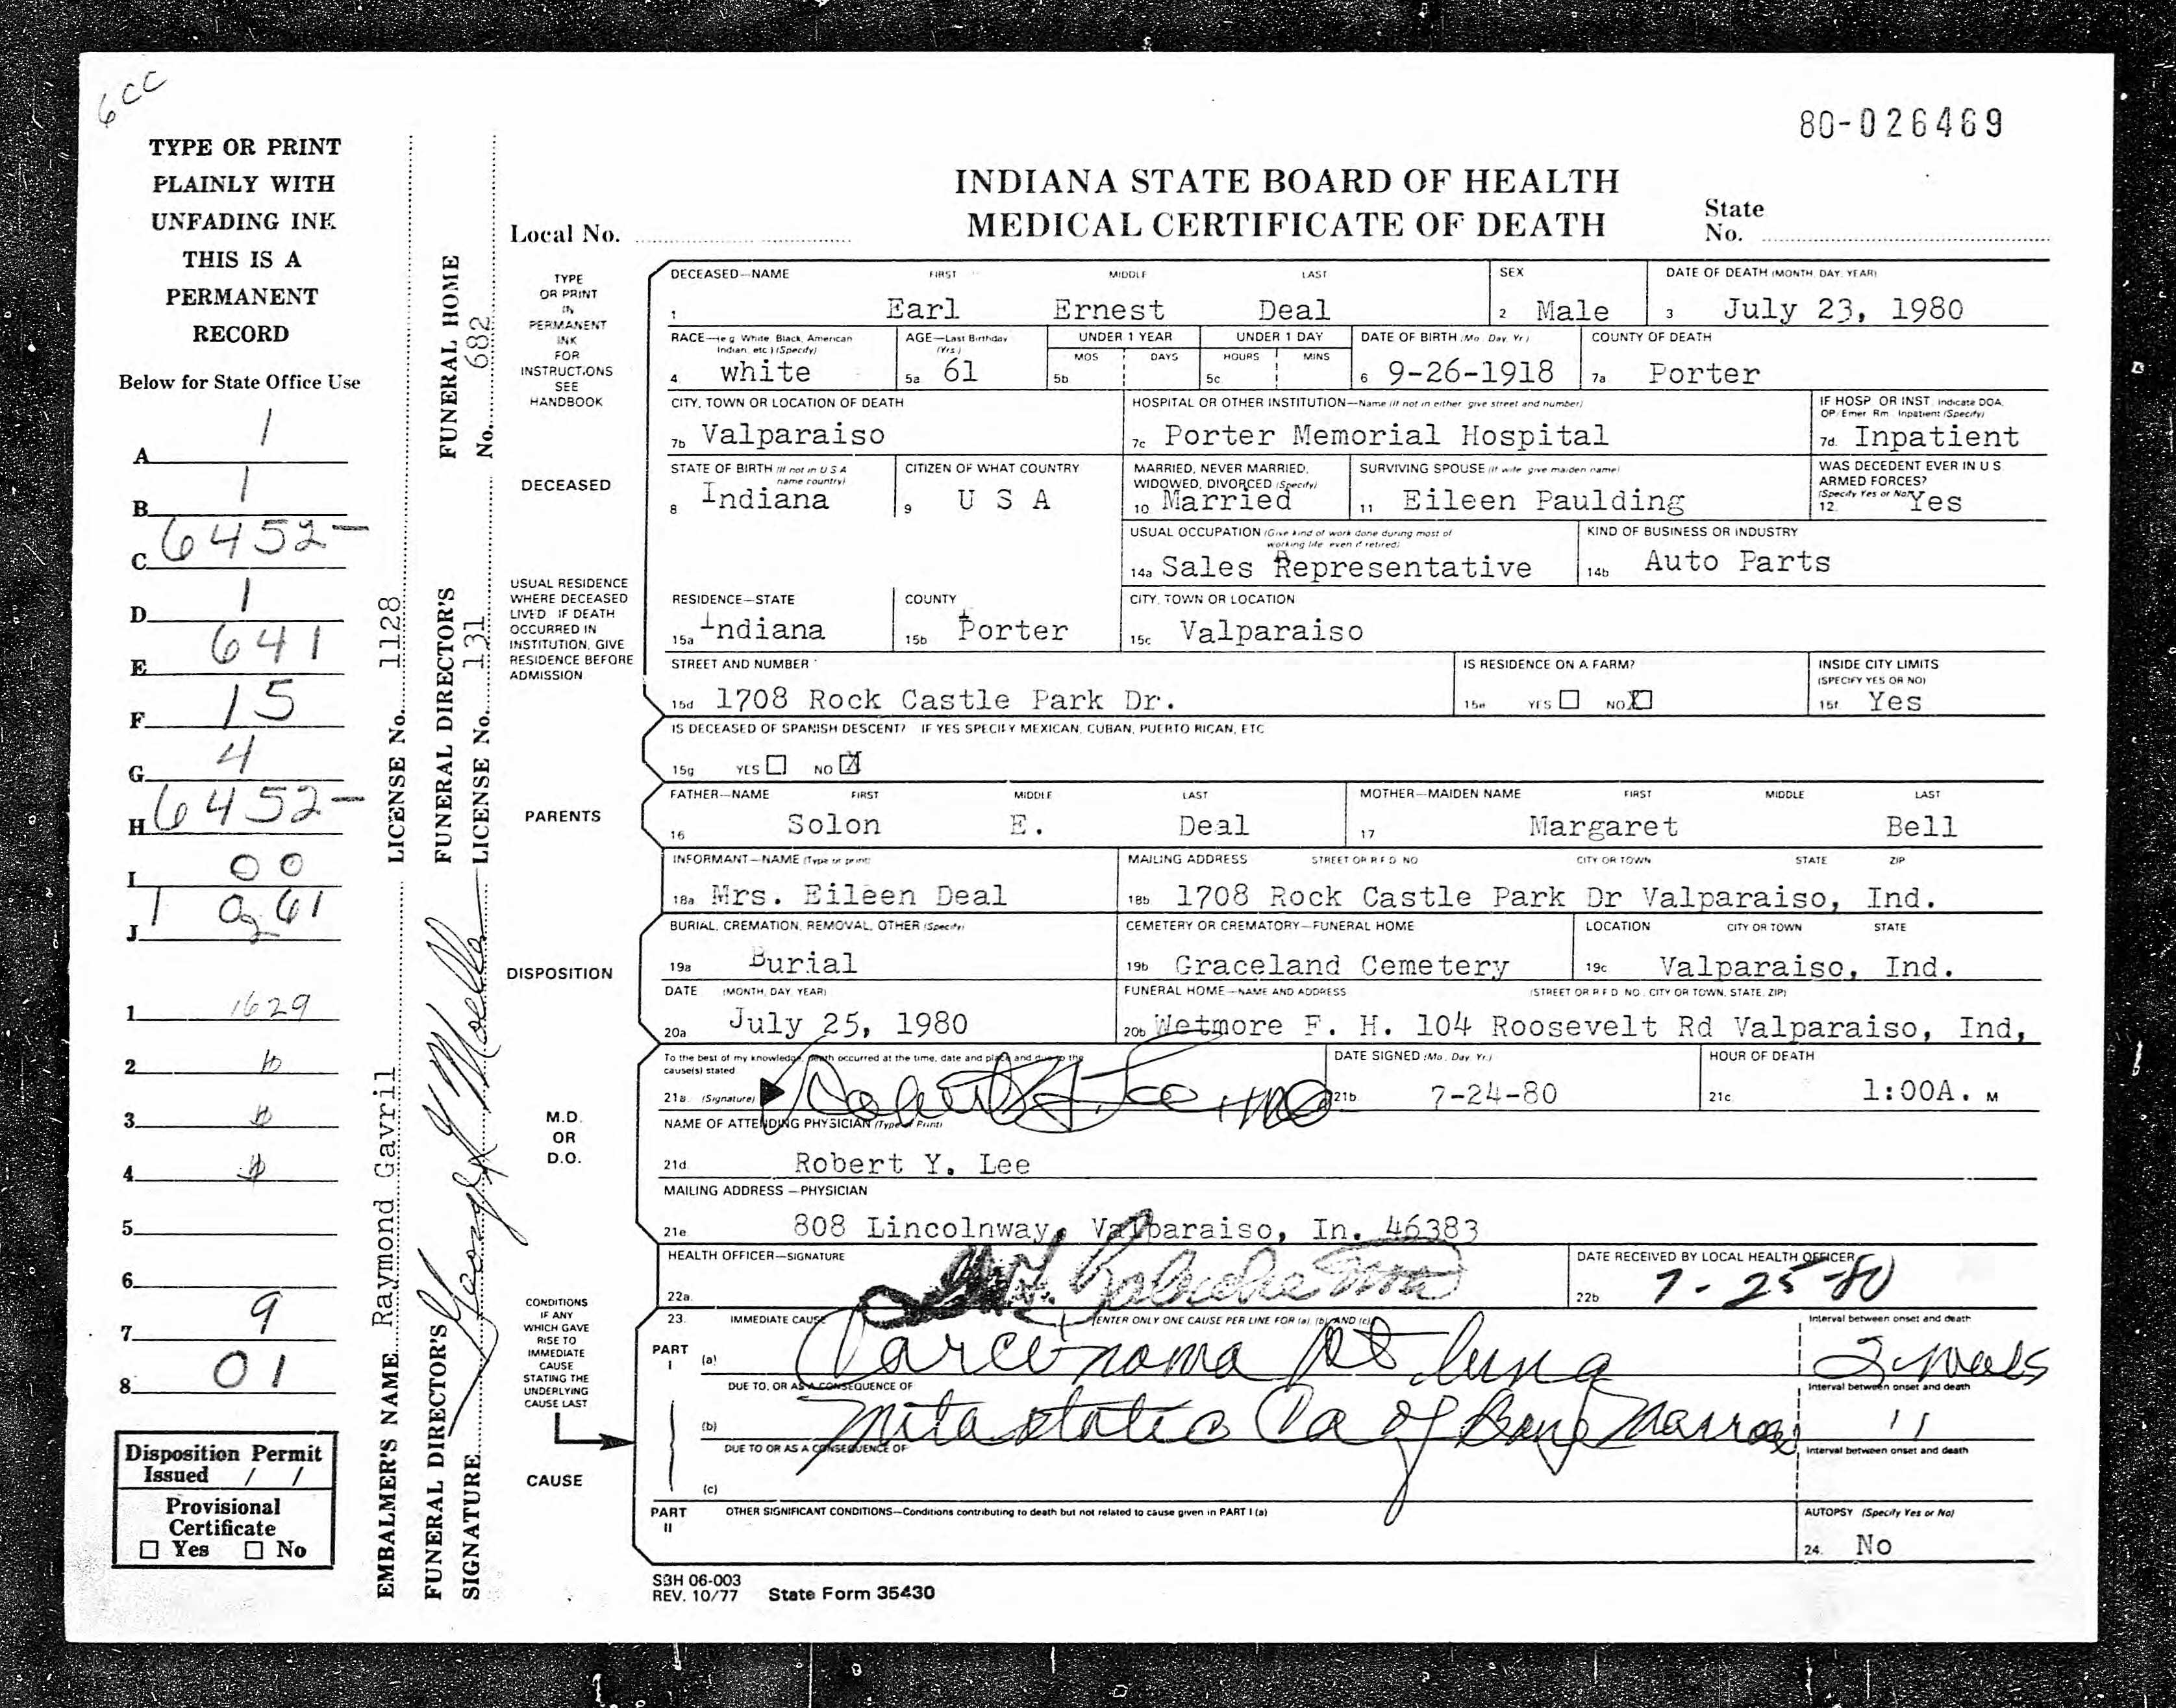 6CC
80-026469
TYPE OR PRINT
PLAINLY WITH
UNFADING INK
THIS IS A
PERMANENT
RECORD
Below for State Office Use
A 1
B 1
C 6452-
D 1
E 641
F 15
G 4
H 6452-
I 00
J 1 61
1 1629
2
3
4
5
6
7 9
8 01
Disposition Permit
Issued / /
Provisional
Certificate
☐ Yes ☐ No
EMBALMER'S NAME Raymond Gavril LICENSE No. 1128
FUNERAL DIRECTOR'S SIGNATURE George
FUNERAL DIRECTOR'S LICENSE No. 131
FUNERAL HOME No. 682
INDIANA STATE BOARD OF HEALTH
MEDICAL CERTIFICATE OF DEATH
Local No.
State
No.
TYPE
OR PRINT
IN
PERMANENT
INK
FOR
INSTRUCTIONS
SEE
HANDBOOK
DECEASED—NAME FIRST MIDDLE LAST SEX DATE OF DEATH (MONTH, DAY, YEAR)
1 Earl Ernest Deal 2 Male 3 July 23, 1980
RACE—(e.g. White, Black, American Indian, etc.) (Specify) AGE—Last Birthday (Yrs.) UNDER 1 YEAR UNDER 1 DAY DATE OF BIRTH (Mo., Day, Yr.) COUNTY OF DEATH
MOS DAYS HOURS MINS
4 white 5a 61 5b 5c 6 9-26-1918 7a Porter
CITY, TOWN OR LOCATION OF DEATH HOSPITAL OR OTHER INSTITUTION—Name (If not in either, give street and number) IF HOSP. OR INST. Indicate DOA, OP/Emer. Rm., Inpatient (Specify)
7b Valparaiso 7c Porter Memorial Hospital 7d. Inpatient
DECEASED
STATE OF BIRTH (If not in U S A name country) CITIZEN OF WHAT COUNTRY MARRIED, NEVER MARRIED, WIDOWED, DIVORCED (Specify) SURVIVING SPOUSE (If wife, give maiden name) WAS DECEDENT EVER IN U S ARMED FORCES? (Specify Yes or No)
8 Indiana 9 U S A 10 Married 11 Eileen Paulding 12. Yes
USUAL OCCUPATION (Give kind of work done during most of working life, even if retired) KIND OF BUSINESS OR INDUSTRY
14a Sales Representative 14b Auto Parts
USUAL RESIDENCE
WHERE DECEASED
LIVED IF DEATH
OCCURRED IN
INSTITUTION, GIVE
RESIDENCE BEFORE
ADMISSION
RESIDENCE—STATE COUNTY CITY, TOWN OR LOCATION
15a Indiana 15b Porter 15c Valparaiso
STREET AND NUMBER IS RESIDENCE ON A FARM? INSIDE CITY LIMITS (SPECIFY YES OR NO)
15d 1708 Rock Castle Park Dr. 15e YES ☐ NO ☒ 15f Yes
IS DECEASED OF SPANISH DESCENT? IF YES SPECIFY MEXICAN, CUBAN, PUERTO RICAN, ETC
15g YES ☐ NO ☒
PARENTS
FATHER—NAME FIRST MIDDLE LAST MOTHER—MAIDEN NAME FIRST MIDDLE LAST
16 Solon E. Deal 17 Margaret Bell
INFORMANT—NAME (Type or print) MAILING ADDRESS STREET OR R F D NO CITY OR TOWN STATE ZIP
18a Mrs. Eileen Deal 18b 1708 Rock Castle Park Dr Valparaiso, Ind.
DISPOSITION
BURIAL, CREMATION, REMOVAL, OTHER (Specify) CEMETERY OR CREMATORY—FUNERAL HOME LOCATION CITY OR TOWN STATE
19a Burial 19b Graceland Cemetery 19c Valparaiso, Ind.
DATE (MONTH, DAY, YEAR) FUNERAL HOME—NAME AND ADDRESS (STREET OR R F D NO., CITY OR TOWN, STATE, ZIP)
20a July 25, 1980 20b Wetmore F. H. 104 Roosevelt Rd Valparaiso, Ind,
M.D.
OR
D.O.
To the best of my knowledge, death occurred at the time, date and place and due to the cause(s) stated DATE SIGNED (Mo., Day, Yr.) HOUR OF DEATH
21a. (Signature) Robert Y. Lee MD 21b 7-24-80 21c 1:00A. M
NAME OF ATTENDING PHYSICIAN (Type or Print)
21d Robert Y. Lee
MAILING ADDRESS—PHYSICIAN
21e 808 Lincolnway, Valparaiso, In. 46383
HEALTH OFFICER—SIGNATURE DATE RECEIVED BY LOCAL HEALTH OFFICER
22a. 22b 7-25-80
CONDITIONS
IF ANY
WHICH GAVE
RISE TO
IMMEDIATE
CAUSE
STATING THE
UNDERLYING
CAUSE LAST
CAUSE
23. IMMEDIATE CAUSE (ENTER ONLY ONE CAUSE PER LINE FOR (a), (b), AND (c)) Interval between onset and death
PART I (a) Carcinoma Rt lung
DUE TO, OR AS A CONSEQUENCE OF Interval between onset and death
(b) Metastatic Ca of Bone Marrow 11
DUE TO OR AS A CONSEQUENCE OF Interval between onset and death
(c)
PART II OTHER SIGNIFICANT CONDITIONS—Conditions contributing to death but not related to cause given in PART I (a) AUTOPSY (Specify Yes or No)
24. No
SBH 06-003
REV. 10/77 State Form 35430